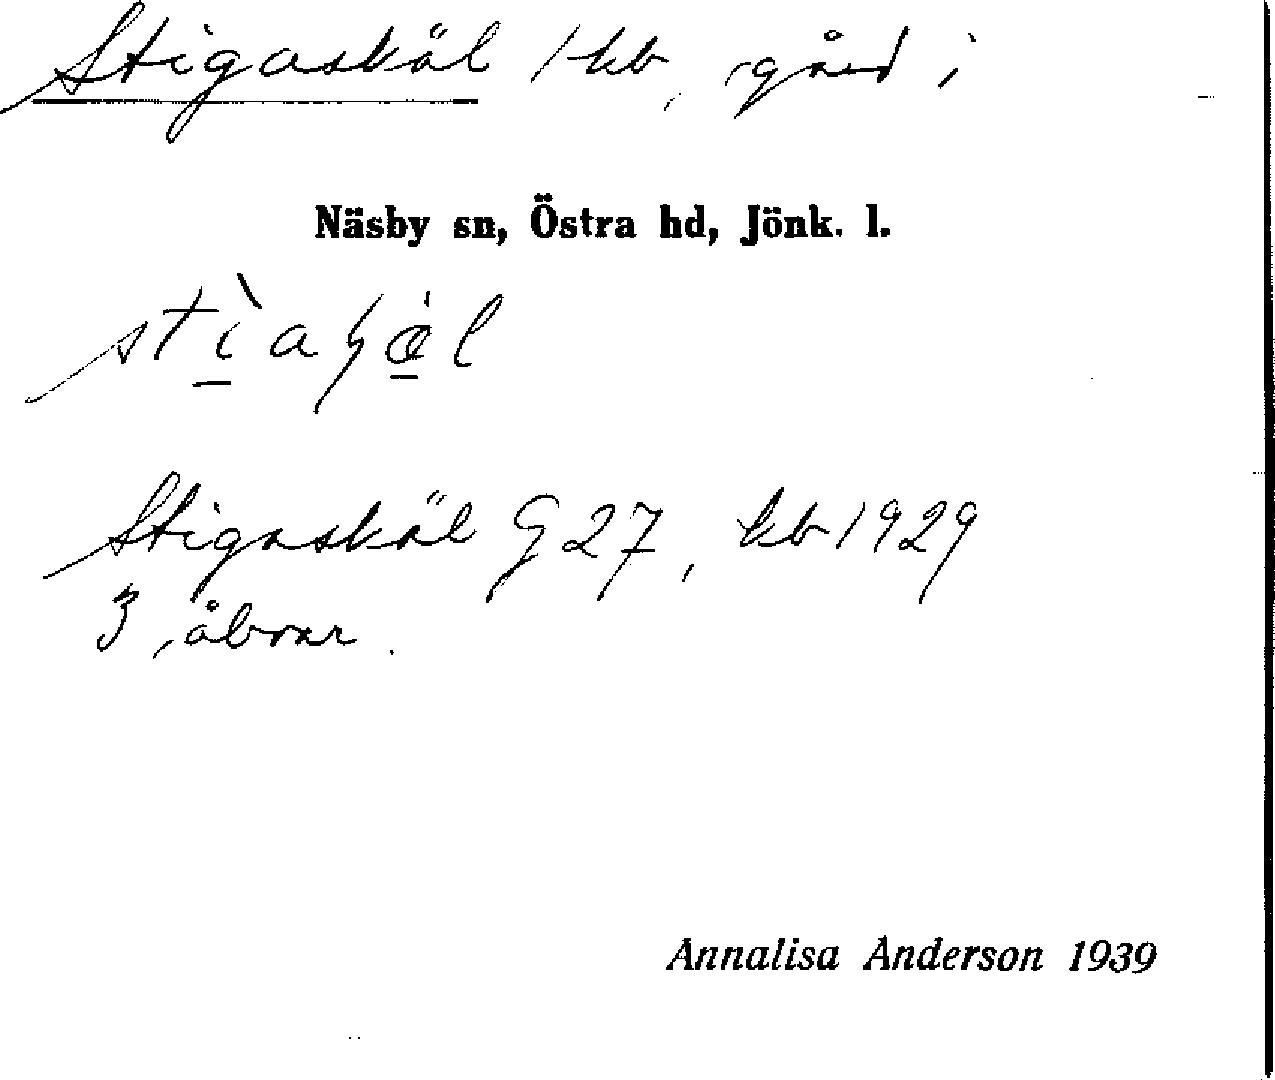 Stigaskäl 1 kb, gård i
Näsby sn, Östra hd, Jönk. l.
Stigaskäl G 27, kb 1929
3 åboar.
Annalisa Anderson 1939